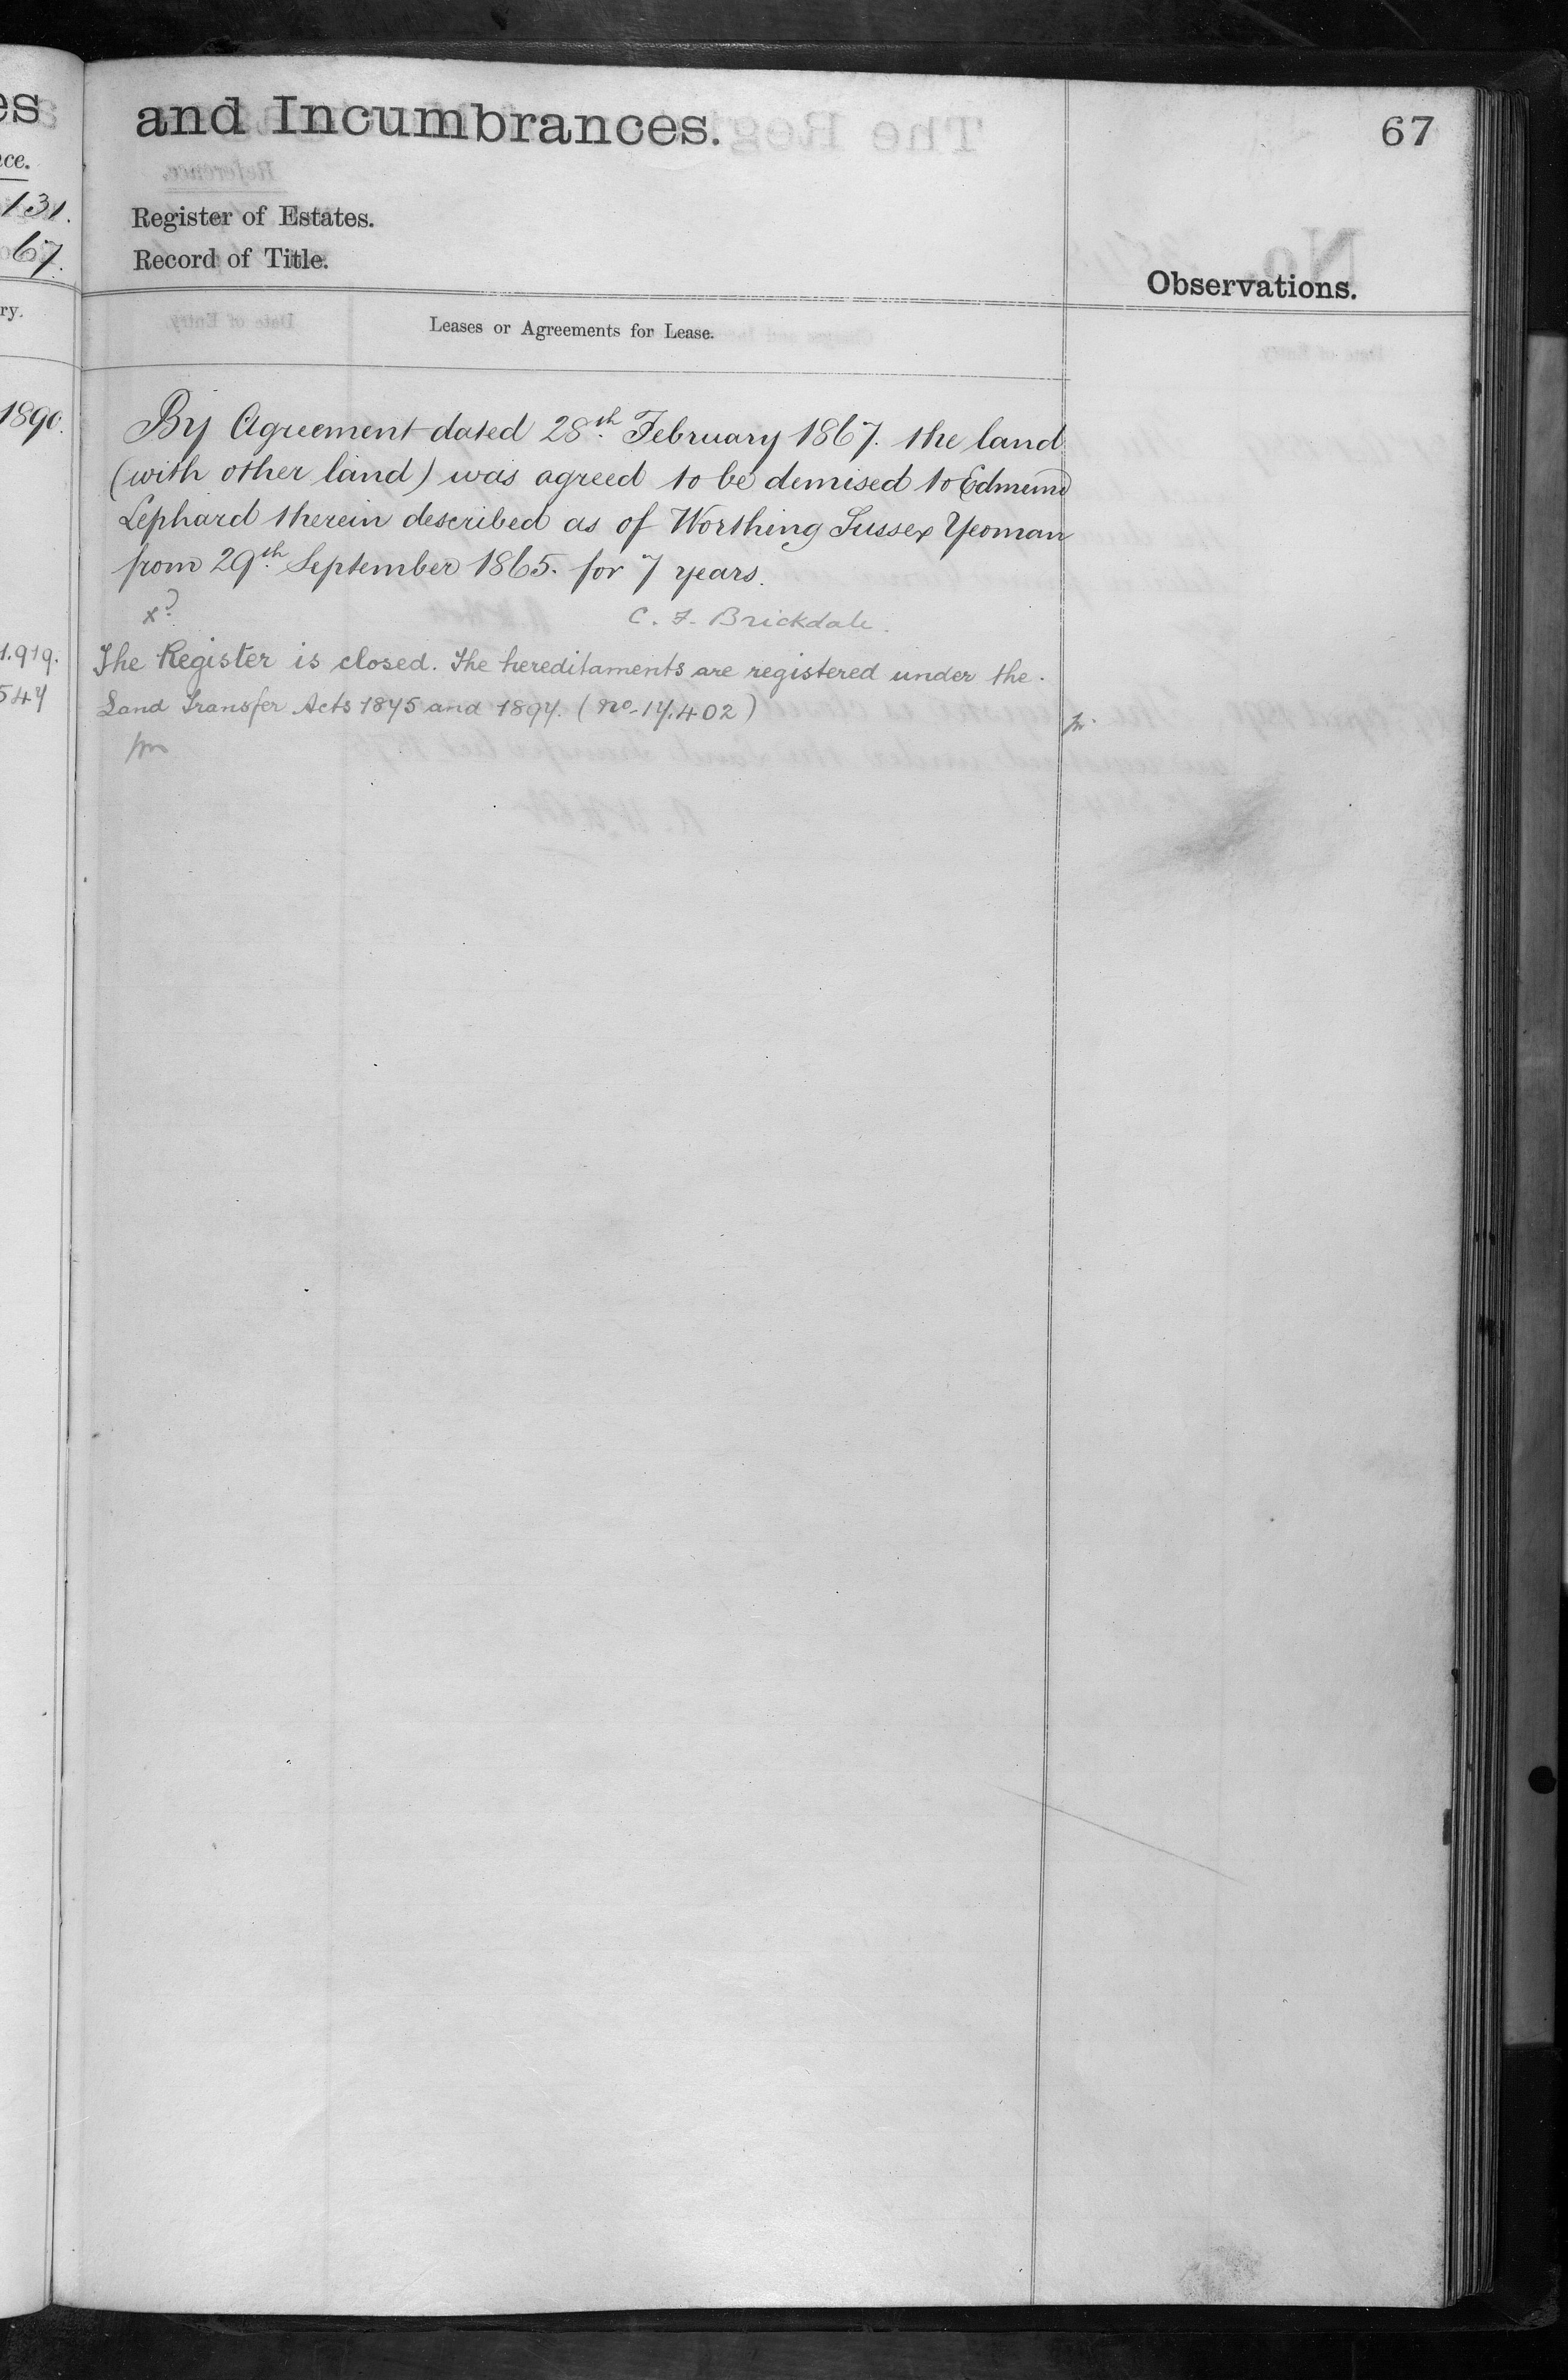 and Incumbrances.
67
Register of Estates.
Record of Title.
Observations.
Leases or Agreements for Lease.
131.
67.
1890.
By Agreement dated 28th. February 1867. the land
(with other land) was agreed to be demised to Edmund
Lephard therein described as of Worthing Sussex Yeoman
from 29th. September 1865. for 7 years.
C. F. Brickdale.
The Register is closed. The hereditaments are registered under the.
Land Transfer Acts 1875 and 1897. (No. 17.402)